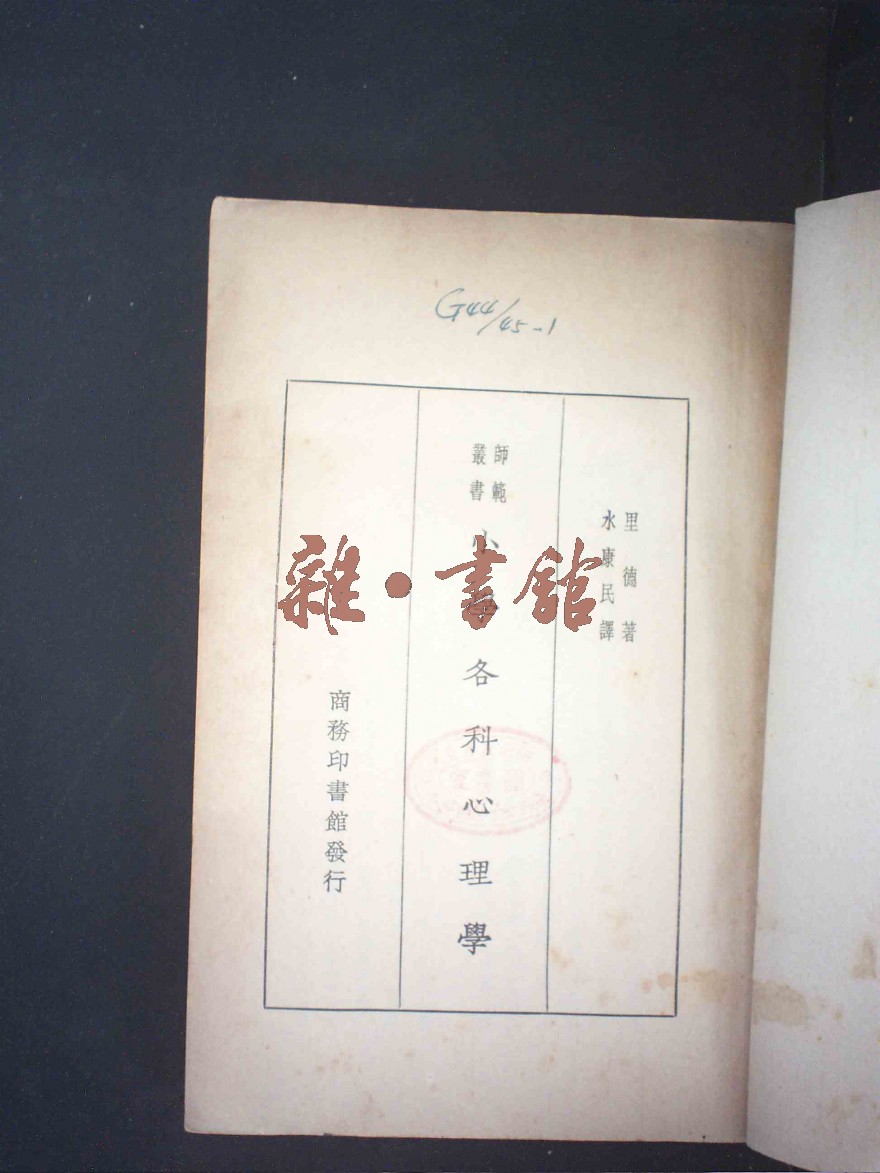 G44/45-1
里德著
水康民譯
師範
叢書
小學各科心理學
商務印書館發行
雜·書館